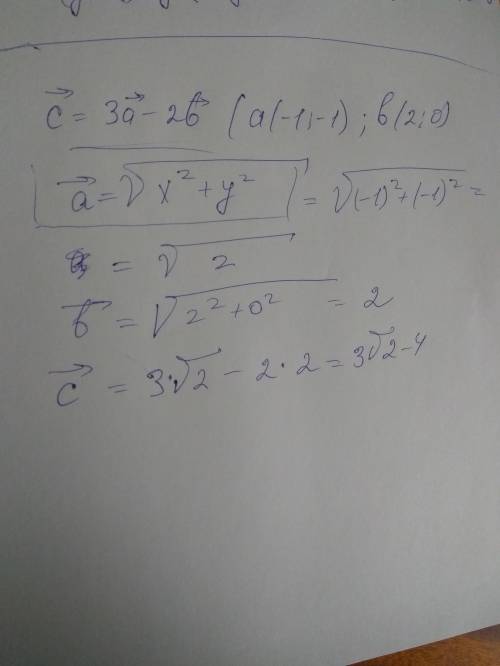 c⃗ = 3a⃗ - 2b⃗ (a(-1; -1) ; b(2; 0)
a⃗ = √x² + y² = √(-1)² + (-1)² =
= √2
b⃗ = √2² + 0² = 2
c⃗ = 3·√2 - 2·2 = 3√2 - 4